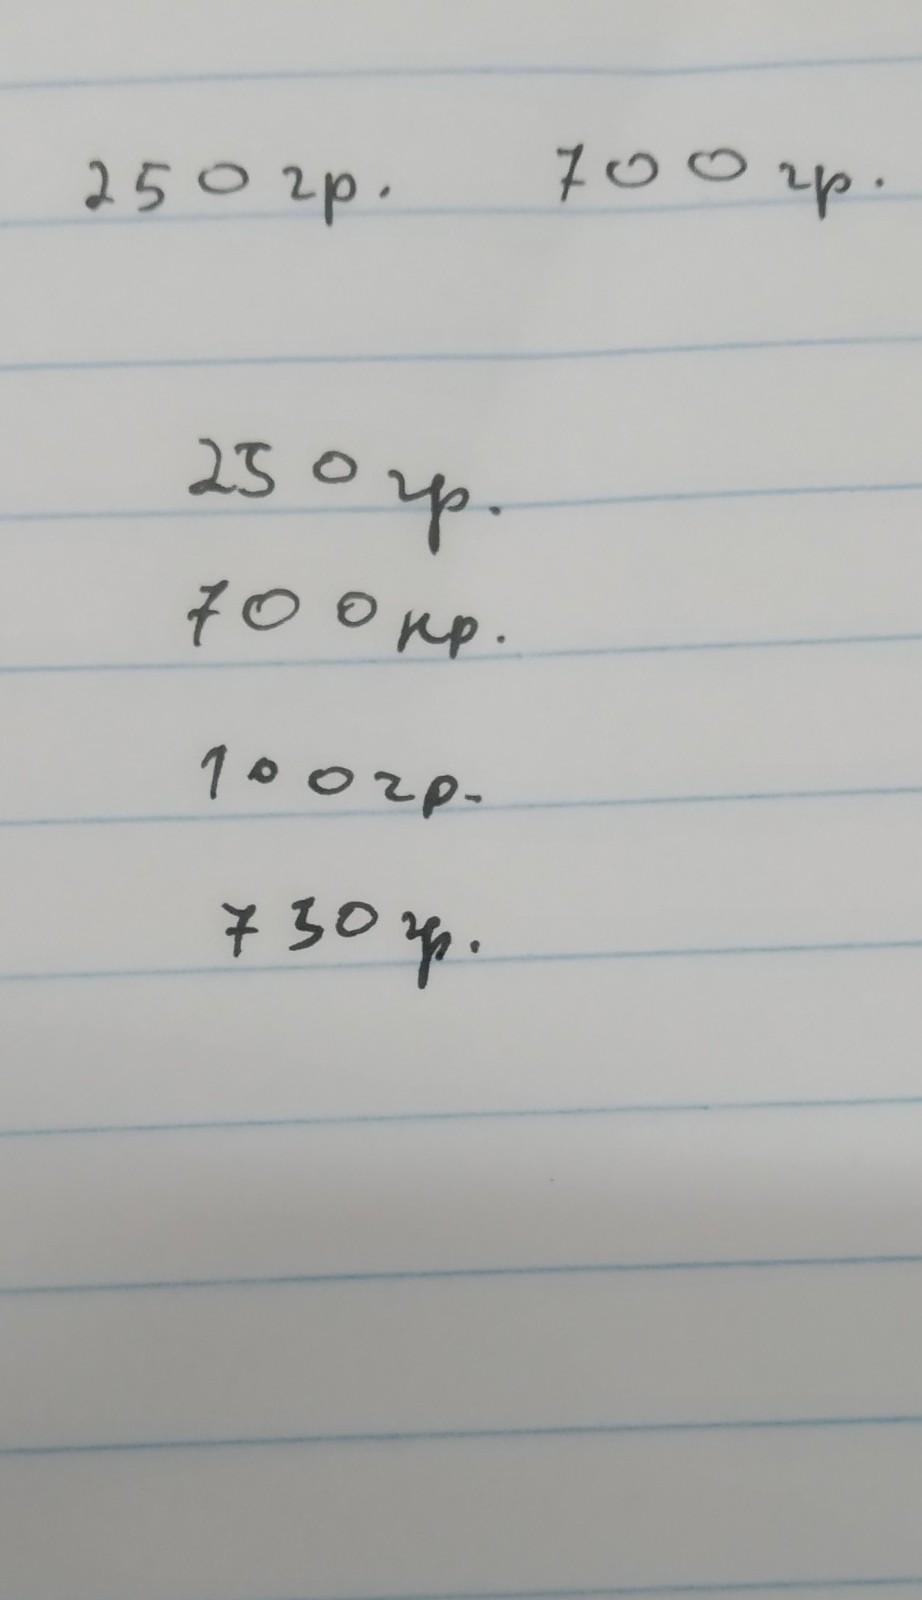 250 гр. 700 гр.
250 гр.
700 кр.
100 гр.
730 гр.